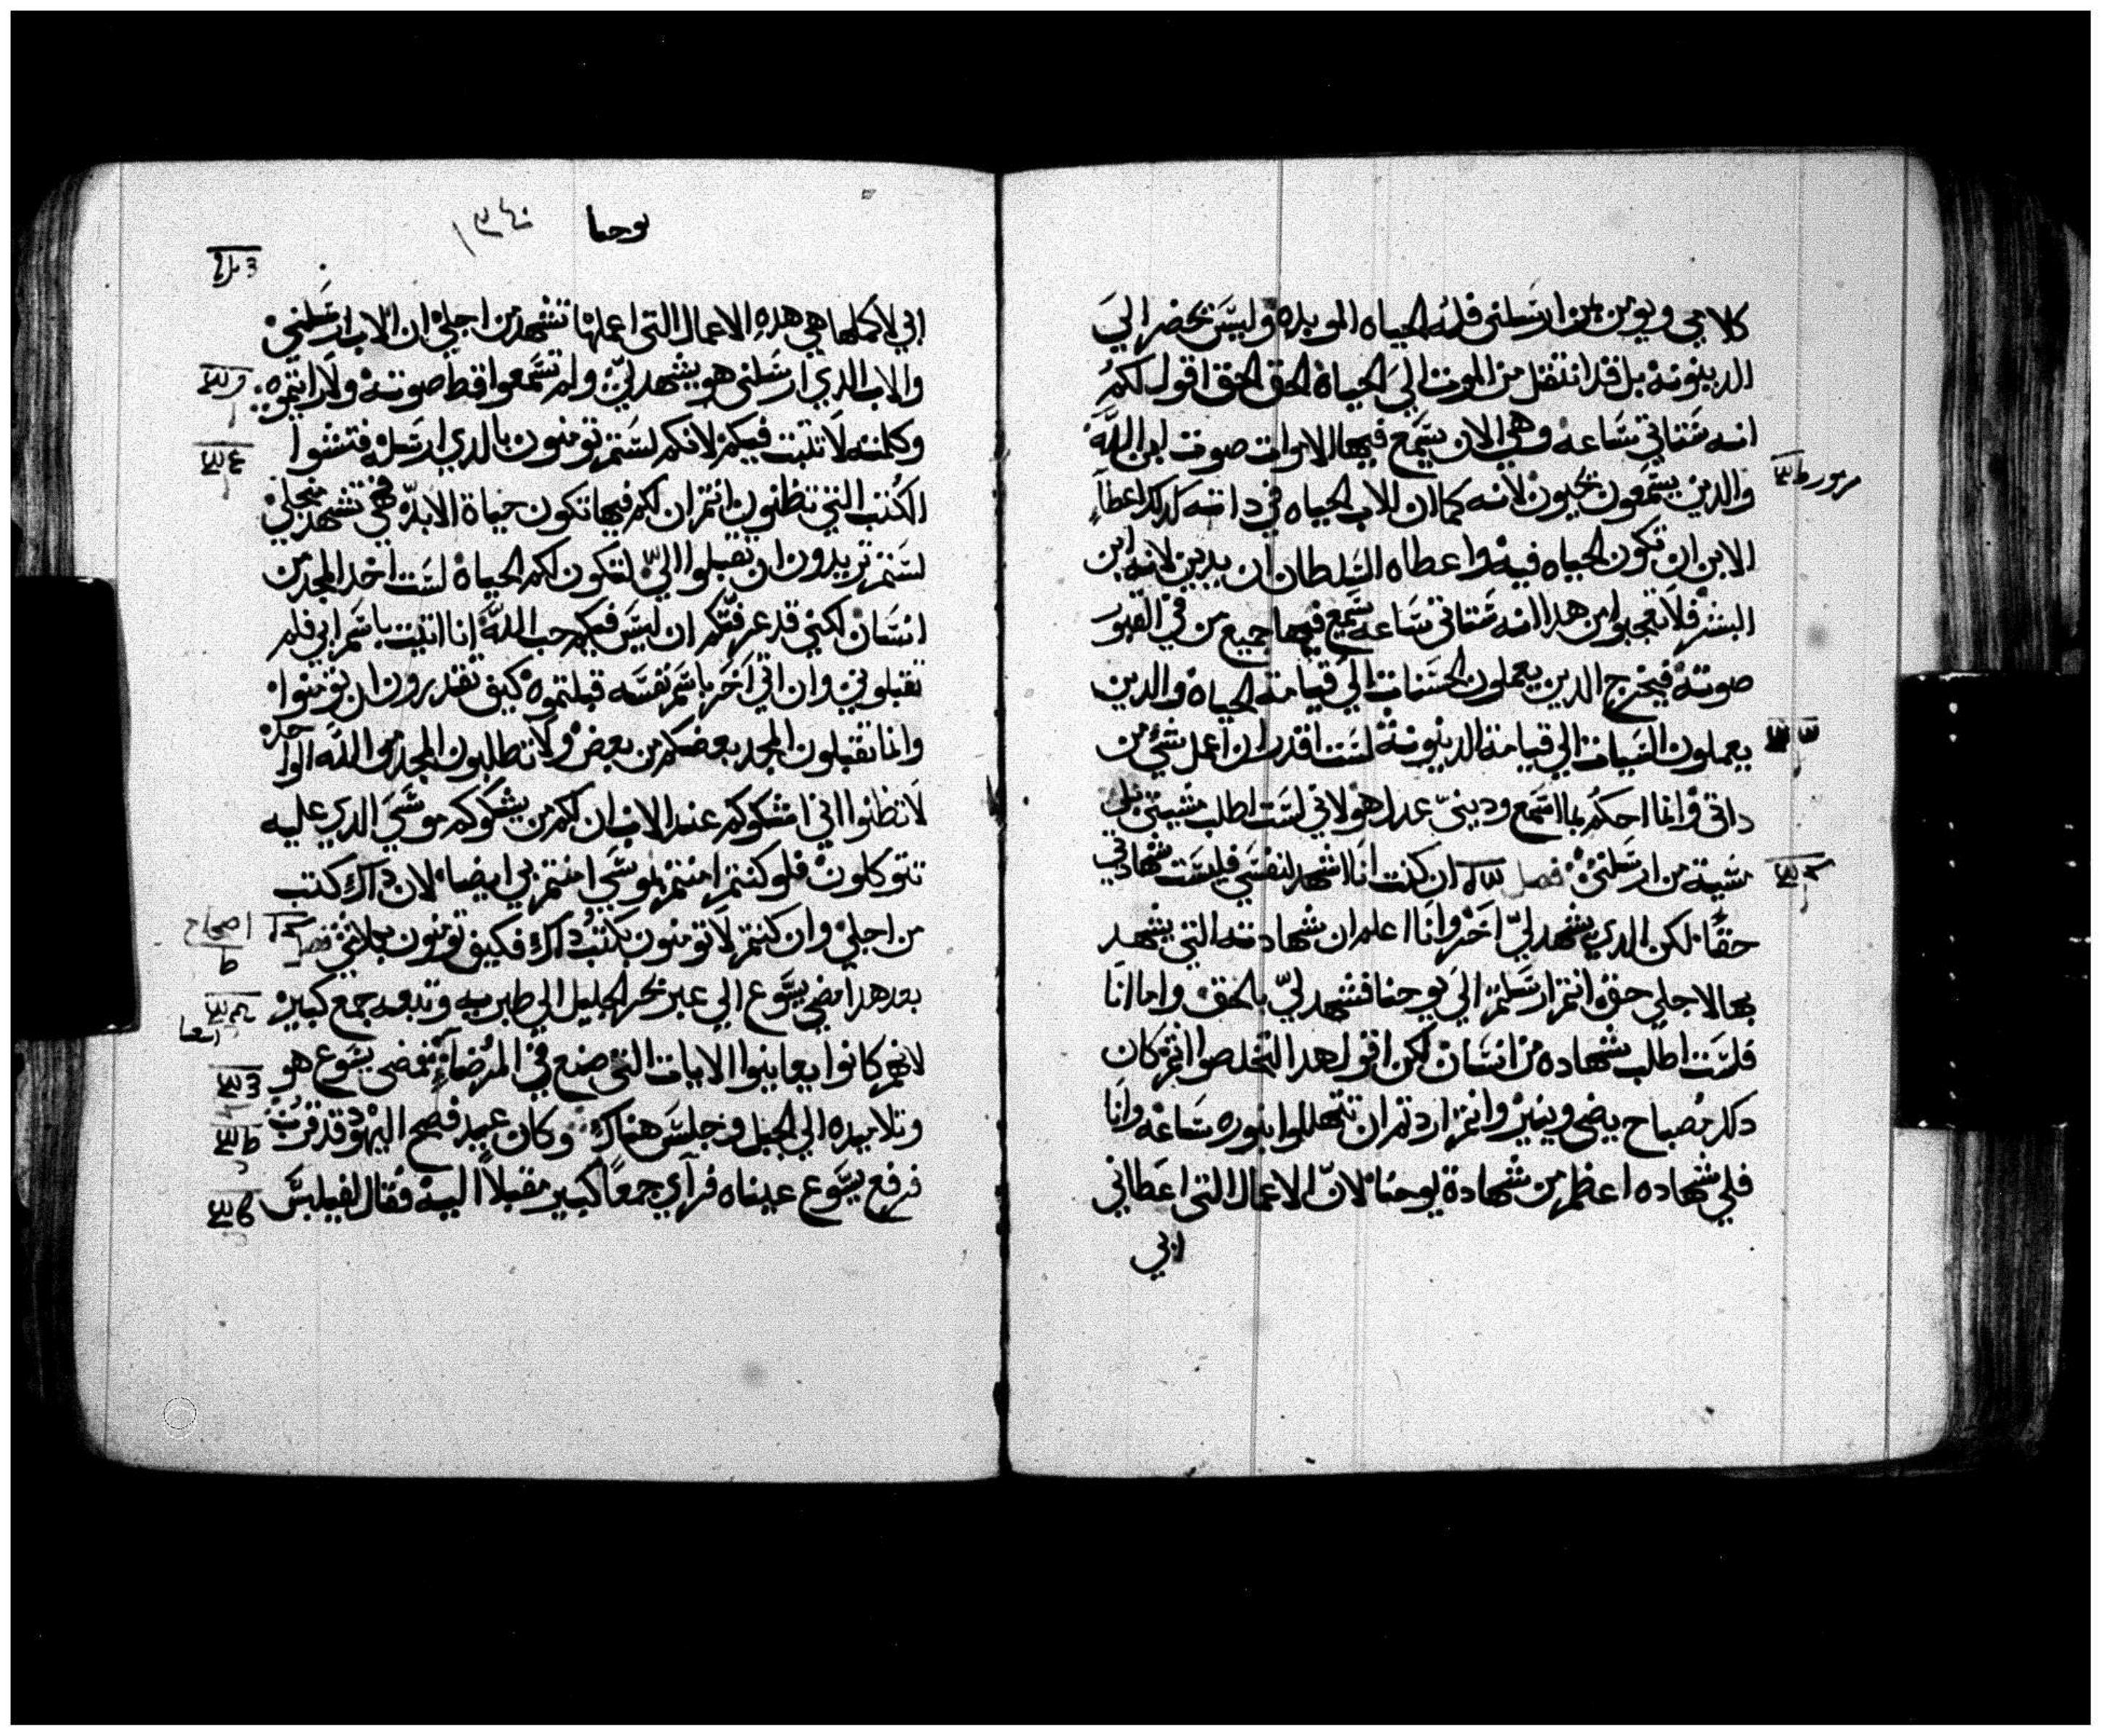 كلامي ويومن بمن ارسلني فله الحياه الموبده وليس يحضر الي
الدينونة بل قد انتقل من الموت الي الحياة الحق الحق اقول لكم
انه ستاتي ساعه وهي الان يسمع فيها الاموات صوت ابن الله
والذين يسمعون يحيون لانه كما ان للاب الحياه في داته كدلك اعطا
الابن ان تكون الحياه فيه واعطاه السلطان ان يدين لانه ابن
البشر فلا تعجبوا من هدا انه ستاتي ساعه يسمع فيها جميع من في القبور
صوته فيخرج الدين يعملون الحسنات الي قيامة الحياه والدين
يعملون السيات الي قيامة الدينونة لست اقدر ان اعمل شي من
داتي وانما احكم بما اسمع وديني عدل هو لاني لست اطلب مشيتي بل
مشية من ارسلني فصل ان كنت انا اشهد لنفسي فليست شهادتي
حقا لكن الدي يشهد لي اخر وانا اعلم ان شهادته التي يشهد
بها لاجلي حق انتم ارسلتم الي يوحنا فشهد لي بالحق واما انا
فلست اطلب شهاده من انسان لكن اقول هدا لتخلصوا انتم كان
داك مصباح يضي وينير وانتم اردتم ان تتهللوا بنوره ساعه وانا
فلي شهاده اعظم من شهادة يوحنا لان الاعمال التي اعطاني
ابي
يوحنا
ابي لاكملها هي هده الاعمال التي اعملها تشهد من اجلي ان الاب ارسلني
والاب الدي ارسلني هو يشهد لي ولم تسمعوا قط صوته ولا رايتموه
وكلمته لا تثبت فيكم لانكم لستم تومنون بالدي ارسله فتشوا
الكتب التي تظنون انتم ان لكم فيها تكون حياة الابد فهي تشهد من اجلي
لستم تريدون ان تقبلوا الي لتكون لكم الحياة لست اخد المجد من
انسان لكني قد عرفتكم ان ليس فيكم حب الله انا اتيت باسم ابي فلم
تقبلوني وان اتي اخر باسم نفسه قبلتموه كيف تقدرون ان تومنوا
وانما تقبلون المجد بعضكم من بعض ولا تطلبون المجد من الله الواحد
لا تظنوا اني اشكوكم عند الاب ان لكم من يشكوكم موسي الدي عليه
تتوكلون فلو كنتم امنتم بموسي امنتم بي ايضا لان داك كتب
من اجلي وان كنتم لا تومنون بكتب داك فكيف تومنون بكلامي فصل
اصحاح
بعد هدا مضي يسوع الي عبر بحر الجليل الي طبريه وتبعه جمع كبير
لانهم كانوا يعاينوا الايات التي صنع في المرضاء فمضى يسوع هو
وتلاميده الي الجبل وجلس هناك وكان عيد فصح اليهود قد قرب
فرفع يسوع عيناه فرآي جمعا كبير مقبلا اليه فقال لفيلبس